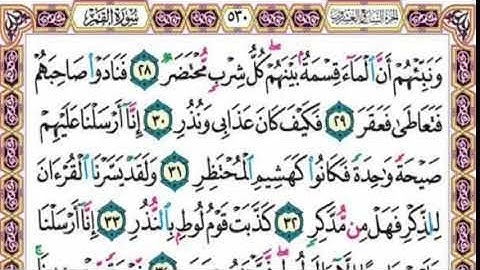 سُورَةُ القَمَرِ ٥٣٠ الجزء السابع والعشرون
وَنَبِّئْهُمْ أَنَّ ٱلْمَآءَ قِسْمَةٌۢ بَيْنَهُمْ كُلُّ شِرْبٍ مُّحْتَضَرٌ ٢٨ فَنَادَوْا۟ صَاحِبَهُمْ
فَتَعَاطَىٰ فَعَقَرَ ٢٩ فَكَيْفَ كَانَ عَذَابِى وَنُذُرِ ٣٠ إِنَّآ أَرْسَلْنَا عَلَيْهِمْ
صَيْحَةً وَٰحِدَةً فَكَانُوا۟ كَهَشِيمِ ٱلْمُحْتَظِرِ ٣١ وَلَقَدْ يَسَّرْنَا ٱلْقُرْءَانَ
لِلذِّكْرِ فَهَلْ مِن مُّدَّكِرٍ ٣٢ كَذَّبَتْ قَوْمُ لُوطٍۭ بِٱلنُّذُرِ ٣٣ إِنَّآ أَرْسَلْنَا